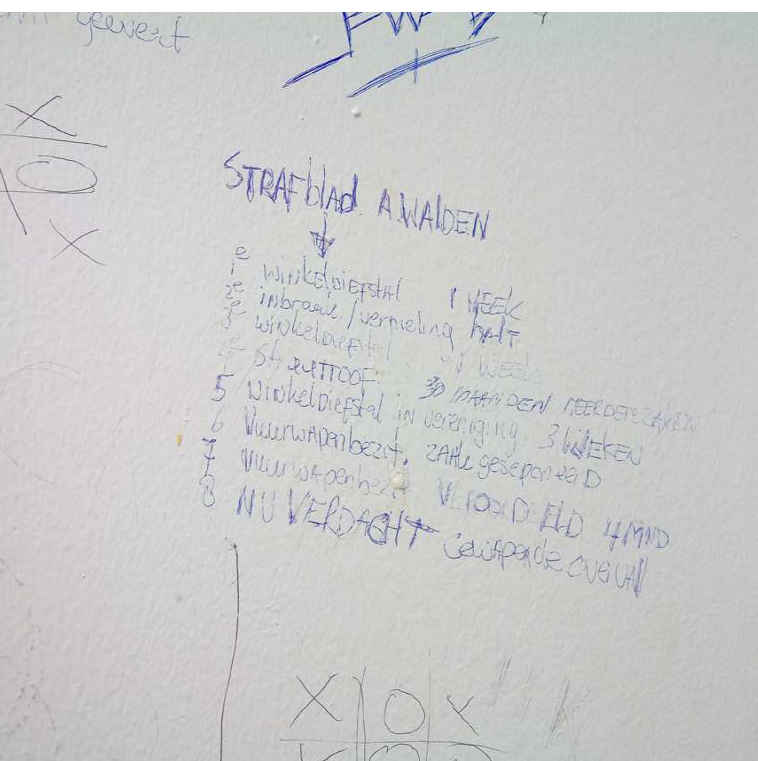 geevert
STRAFblad. A.WAlDEN
1e winkeldiefstal 1 WEEK
2e inbraak/vernieling halt
3e winkeldiefstal 1 WEEK
4e straatroof: MAANDEN MEERDERE ZAKEN
5 winkeldiefstal in vereniging. 3 WEKEN
6 Vuurwapenbezit. ZAAK geseponeerD
7 Vuurwapenbezit VEROORDEELD 4 MND
8 NU VERDACHT Gewapende overval
X
O
X
X O X